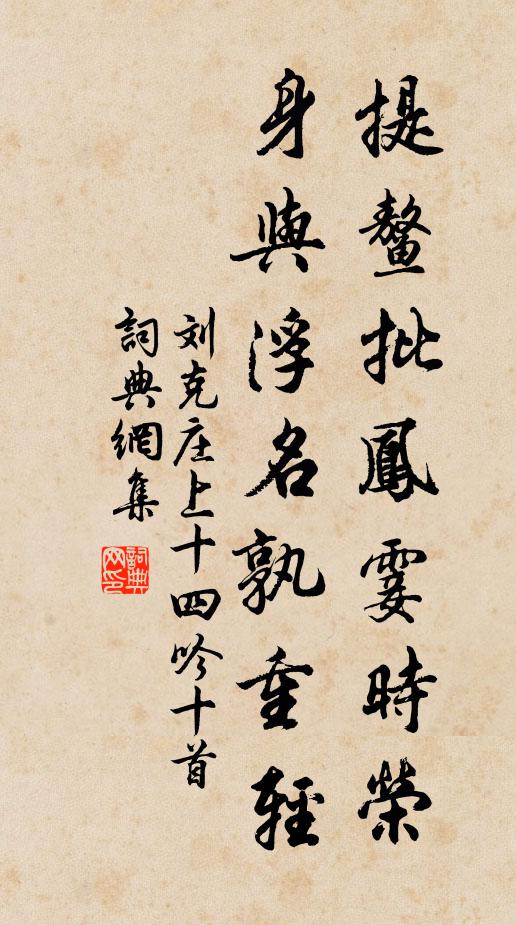 提鳌批鳳霎時榮
身與浮名孰重輕
刘克庄上十四吟十首
詞典網集
詞典网印